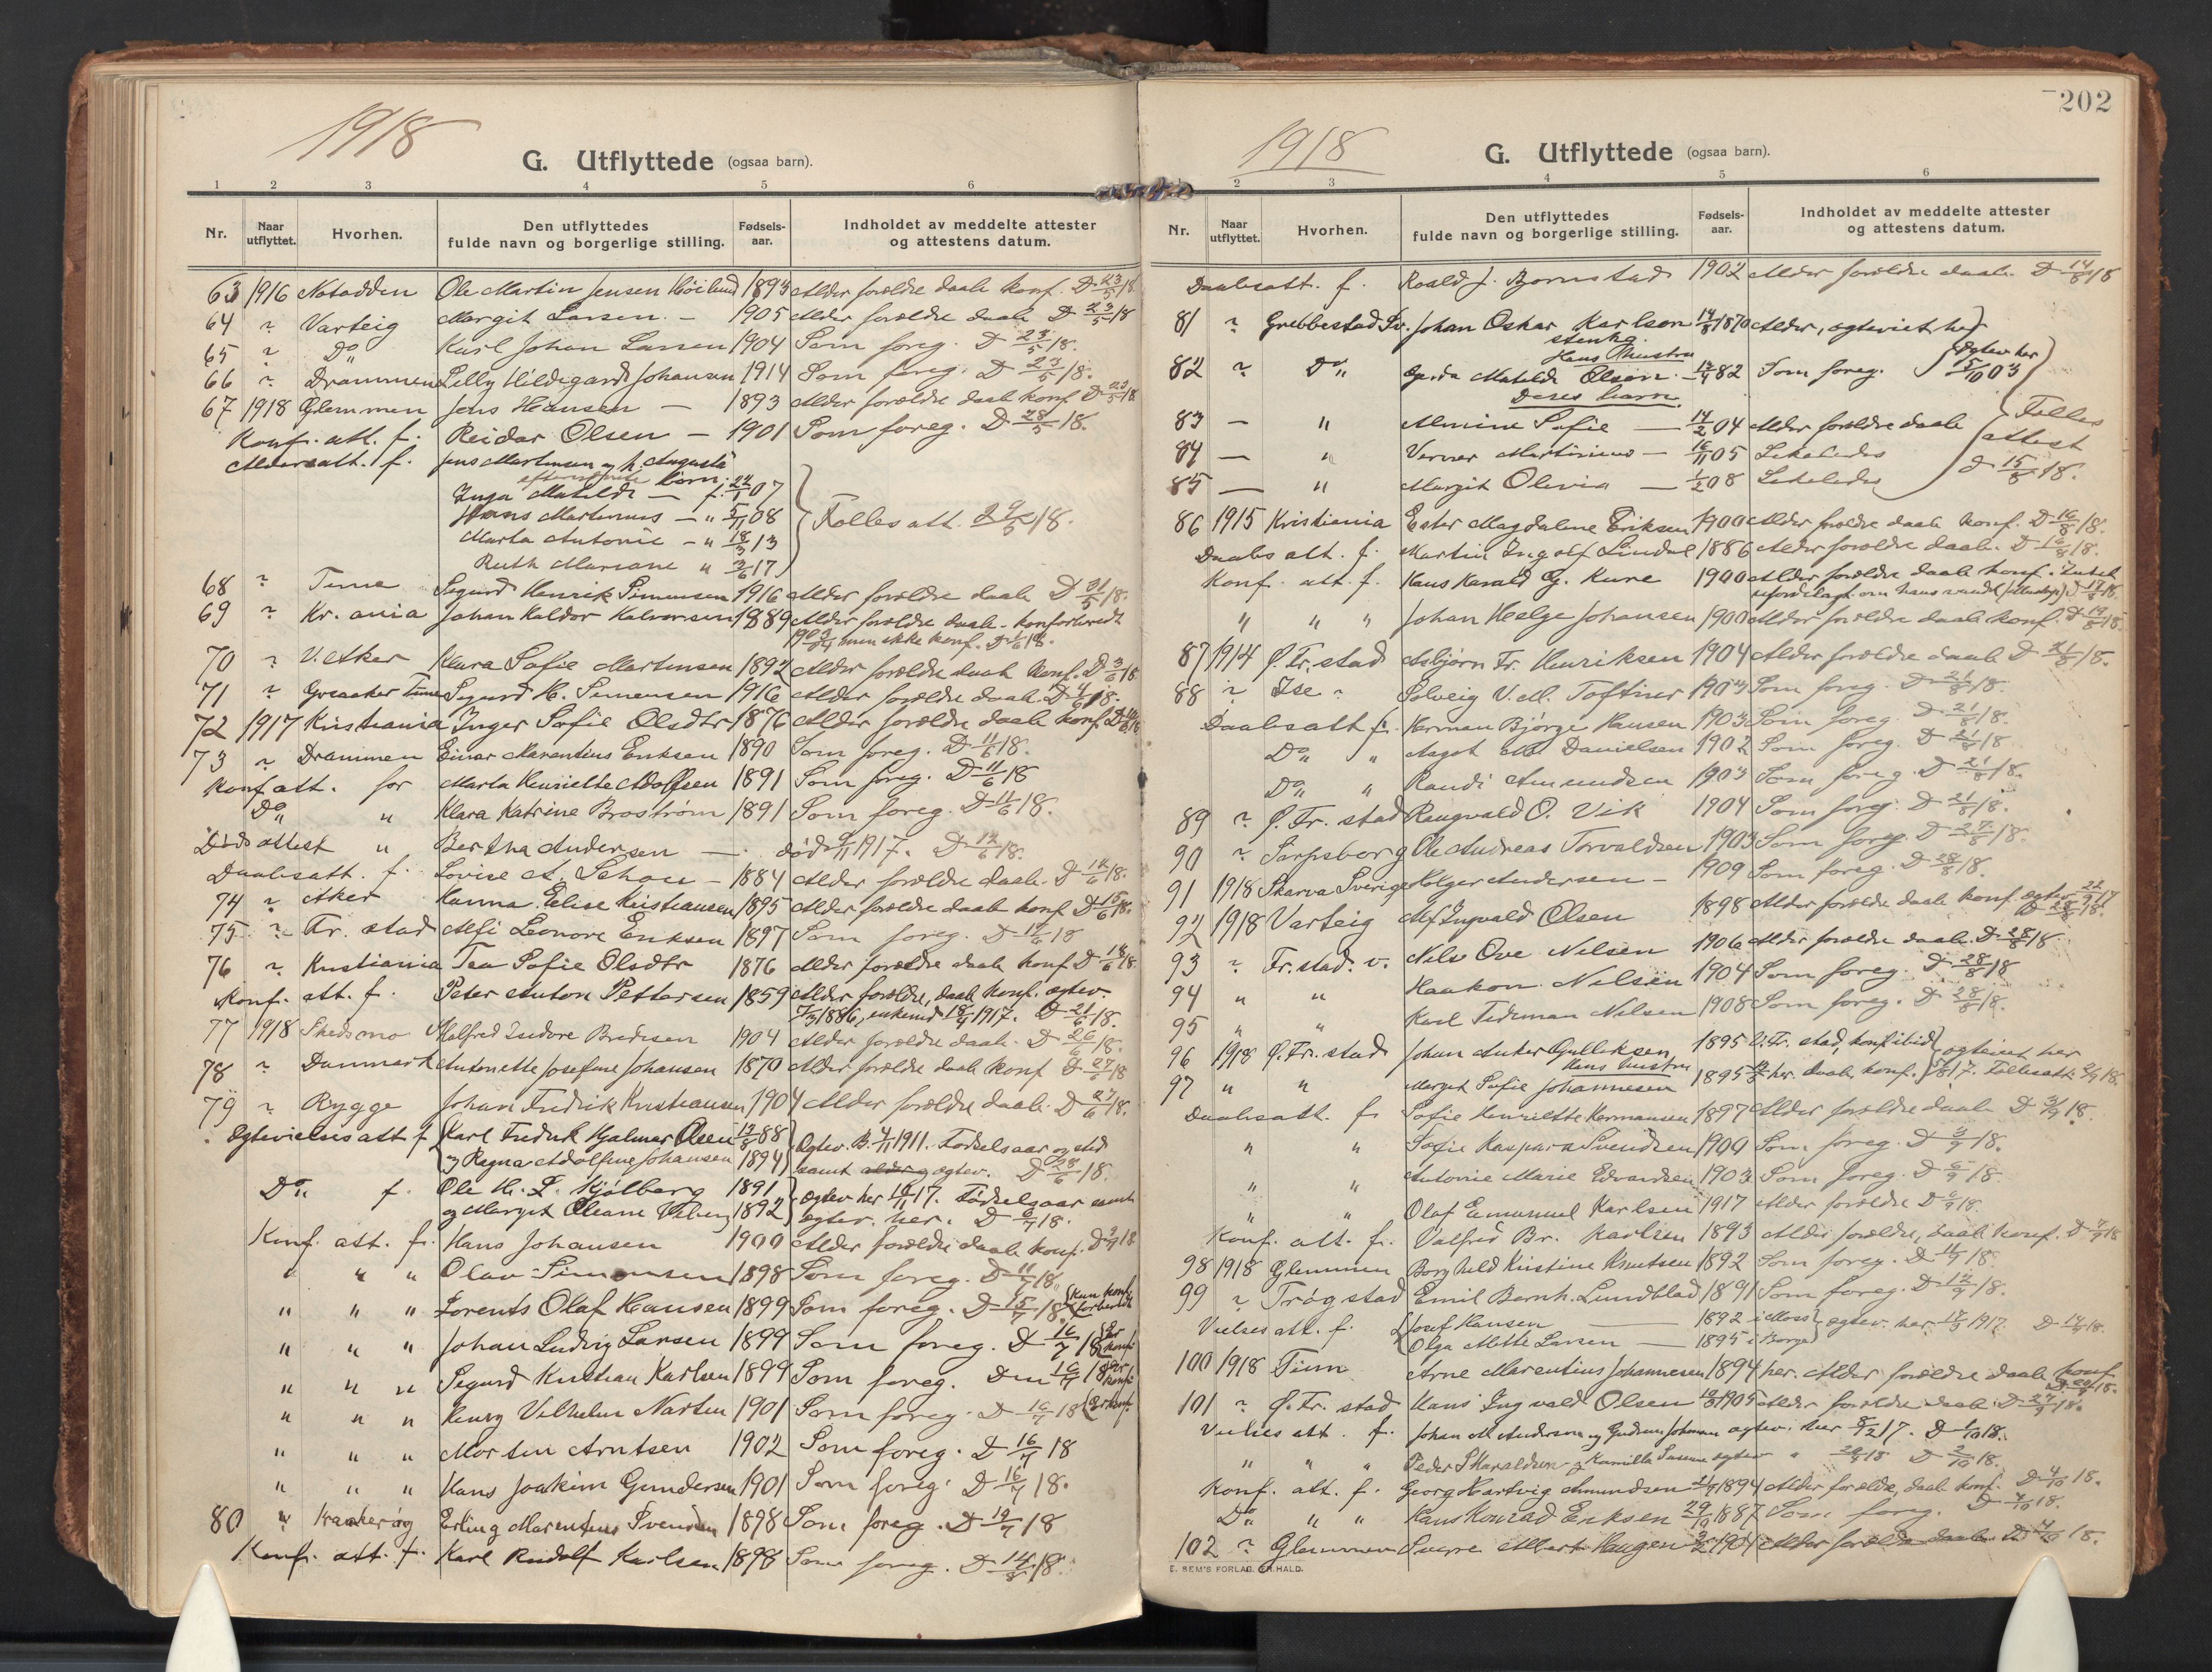 1918
G. Utflyttede (ogsaa barn).
1 2 3 4 5 6
Nr. Naar utflyttet. Hvorhen. Den utflyttedes fulde navn og borgerlige stilling. Fødsels-aar. Indholdet av meddelte attester og attestens datum.
63 1916 Notodden Ole Martin Jensen Høilund 1893 Alder forældre daab konf. D 23/5 18
64 " Varteig Margit Larsen. — 1905 Alder forældre daab D 23/5 18
65 " Do Karl Johan Larsen 1904 Som foreg. D 23/5 18.
66 " Drammen Lilly Hildegard Johansen 1914 Som foreg. D 23/5 18.
67 1918 Glemmen Jens Hansen — 1893 Alder forældre daab konf. D 23/5 18
Konf. att. f. Reidar Olsen — 1901 Som foreg. D 28/5 18.
Aldersatt. f. Jens Martinsen og h. Augusta
børn:
Inga Matilde — f. 22/1 07
Hans Martinius — " 5/11 08
Marta Antonie — " 18/3 13
Ruth Mariane " 3/6 17
Fælles att. 29/5 18.
68 " Tune Sigurd Henrik Simensen 1916 Alder forældre daab D 31/5 18.
69 " Kr.ania Johan Haldor Halvorsen 1889 Alder forældre daab. konforberedt
men ikke konf. D 1/6 18.
70 " V. Aker Klara Sofie Martinsen 1892 Alder forældre daab konf. D 3/6 18
71 " Greaaker Tune Sigurd H. Simensen 1916 Alder forældre daab. D 4/6 18.
72 1917 Kristiania Inger Sofie Olsdtr 1876 Alder forældre daab konf.
73 " Drammen Einar Marentius Eriksen 1890 Som foreg. D 11/6 18.
Konf att. for Marta Henriette Adolfsen 1891 Som foreg. D 11/6 18
Do " Klara Katrine Broström 1891 Som foreg. D 11/6 18.
Dødsattest " Bertha Andersen — . død 9/11 1917. D 12/6 18.
Daabsatt. f. Lovise A. Schou — 1884 Alder forældre daab. D 12/6 18.
74 " Aker Hanna Elise Kristiansen 1895 Alder forældre daab konf D 15/6 18.
75 " Fr. stad Alfi Leonore Eriksen 1897 Som foreg. D 17/6 18
76 " Kristiania Tea Sofie Olsdtr 1876 Alder forældre daab konf D 18/6 18.
Konf. att. f. Peter Anton Pettersen 1859 Alder forældre, daab konf. egtev.
1886, enkemd 18/4 1917. D 21/6 18.
77 1918 Skedsmo Valfred Isidore Bredesen 1904 Alder forældre daab. D 26/6 18.
78 " Danmark Antonette Josefine Johansen 1870 Alder forældre daab konf D 27/6 18
79 " Rygge Johan Fredrik Kristiansen 1904 Alder forældre daab. D 27/6 18.
Egtevielsesatt f. Karl Fredrik Hjalmar Olsen 13/8 88 Egtev. B. 4/11 1911. Fødselsaar og sted
og Ragna Adolfine Johansen 1894 samt alder og egtev. D 28/6 18.
Do f. Ole H. L. Kjølberg 1891 egtev her 10/11 17. Fødselsaar samt
og Margit Oleane 1892 egtev. her. D 6/7 18.
Konf. att. f. Hans Johansen 1900 Alder forældre daab konf. D 9/7 18
" " " Olav Simonsen 1898 Som foreg. D 11/7 18.
" " " Lorents Olaf Hansen 1899 Som foreg. D 15/7 18. kun konf forberedt
" " " Johan Ludvig Larsen 1899 Som foreg. D 16/7 18 Er konf
" " " Sigurd Kristian Karlsen 1899 Som foreg. Den 16/7 18 er konf
" " " Henry Vilhelm Narten 1901 Som foreg. D 16/7 18 er konf.
" " " Morten Arntsen 1902 Som foreg. D 16/7 18
" " " Hans Joakim Gundersen 1901 Som foreg. D 16/7 18.
80 " Kraakerøy Erling Marentius Svendsen 1898 Som foreg. D 19/7 18
Konf. att. f. Karl Rudolf Karlsen 1898 Som foreg. D 14/8 18.
202
1918
G. Utflyttede (ogsaa barn).
1 2 3 4 5 6
Nr. Naar utflyttet. Hvorhen. Den utflyttedes fulde navn og borgerlige stilling. Fødsels-aar. Indholdet av meddelte attester og attestens datum.
Daabsatt. f. Roald J. Bjørnstad 1902 Alder forældre daab. D 14/8 18
81 " Grebbestad Sv. Johan Oskar Karlsen 14/8 1870 Alder, egteviet her
stenhg.
Hans Hustru
82 " Do Gerda Matilde Olsen. 13/4 82 Som foreg. Egtev her 15/10 03
Deres barn
83 — " Almine Sofie — 14/2 04 Alder forældre daab Fælles
84 — " Verner Martinius — 16/11 05 Likeledes attest
85 — " Margit Olivia — 1/2 08 Likeledes D 15/8 18.
86 1915 Kristiania Ester Magdalene Eriksen 1900 Alder forældre daab konf. D 16/8 18.
Daabs att. f. Martin Ingolf Lindal 1886 Alder forældre daab. D 16/8 18.
Konf. att. f. Hans Harald G. Kure 1900 Alder forældre daab konf. Intet
ufordelagt. om hans vandel D 17/8 18.
" " " Johan Helge Johansen 1900 Alder forældre daab konf. D 19/8 18.
87 1914 Ø. Fr. stad Asbjørn Fr. Henriksen 1904 Alder forældre daab D 21/8 18.
88 " Ise " Solveig V. M. Toftner 1903 Som foreg. D 21/8 18.
Daabsatt f. Herman Bjørge Hansen 1903 Som foreg. D 21/8 18.
Do " Aagot Danielsen 1902 Som foreg. D 21/8 18
Do " Randi Amundsen 1903 Som foreg. D 21/8 18.
89 " Ø. Fr. stad Raugvald O. Vik 1904 Som foreg. D 21/8 18.
90 " Sarpsborg Ole Andreas Torvaldsen 1903 Som foreg. D 27/8 18.
91 1918 Skarva Sverige Holger Andersen — 1909 Som foreg. D 28/8 18.
92 1918 Varteig Alf Ingvald Olsen 1898 Alder forældre daab konf. egtev 22/9 17
D 28/8 18.
93 " Fr. stad. v. Nils Ove Nilsen 1906 Alder forældre daab. D 28/8 18
94 " " Haakon Nilsen 1904 Som foreg. D 28/8 18
95 " " Karl Tideman Nilsen 1908 Som foreg. D 28/8 18.
96 1918 Ø. Fr. stad Johan Anker Gulliksen 1895 V. Fr. stad, konf ibid egteviet her
Hans hustru
97 " " Margit Sofie Johannesen 1895 her. daab, konf. 17. Fællesatt. 2/9 18.
Daabsatt. f. Sofie Henriette Hermansen 1897 Alder forældre daab D 3/9 18.
" " Sofie Kaspara Svendsen 1900 Som foreg. D 3/9 18.
" " Antonie Marie Edvardsen 1903 Som foreg. D 6/9 18.
" " Olaf Emanuel Karlsen 1917 Alder forældre D 6/9 18.
Konf. att. f. Valfrid Br. Karlsen 1893 Alder forældre, daab konf. D 7/9 18
98 1918 Glemmen Borghild Kristine Knutsen 1892 Som foreg. D 11/9 18.
99 " Trøgstad Emil Bernh. Lundblad 1891 Som foreg. D 12/9 18.
Vielsesatt. f. Josef Hansen — 1892 i Moss egtev. her 18/3 1917 D 14/9 18.
Olga Mette Larsen — 1895 i Borge
100 1918 Tune Arne Marentius Johannesen 1894 her. Alder forældre daab konf
D 20/9 18.
101 " Ø. Fr. stad Hans Ingvald Olsen 19/8 1905 Alder forældre daab. D 27/9 18.
Vielses att. f. Johan M. Andersen og Gudrun Johansen egtev. her 8/12 17. D 1/10 18.
" " " Peder S Haraldsen og Kamilla egtev " 18 D 2/10 18.
Konf. att. f. Georg Hartvig Amundsen 1894 Alder forældre, daab konf. D 4/10 18.
Do " " Hans Konrad Eriksen 29/10 1887 Som foreg. D 4/10 18.
102 " Glemmen Sverre Albert Haugen 1904 Alder forældre daab. D 4/10 18.
E. SEM'S FORLAG. FR.HALD.